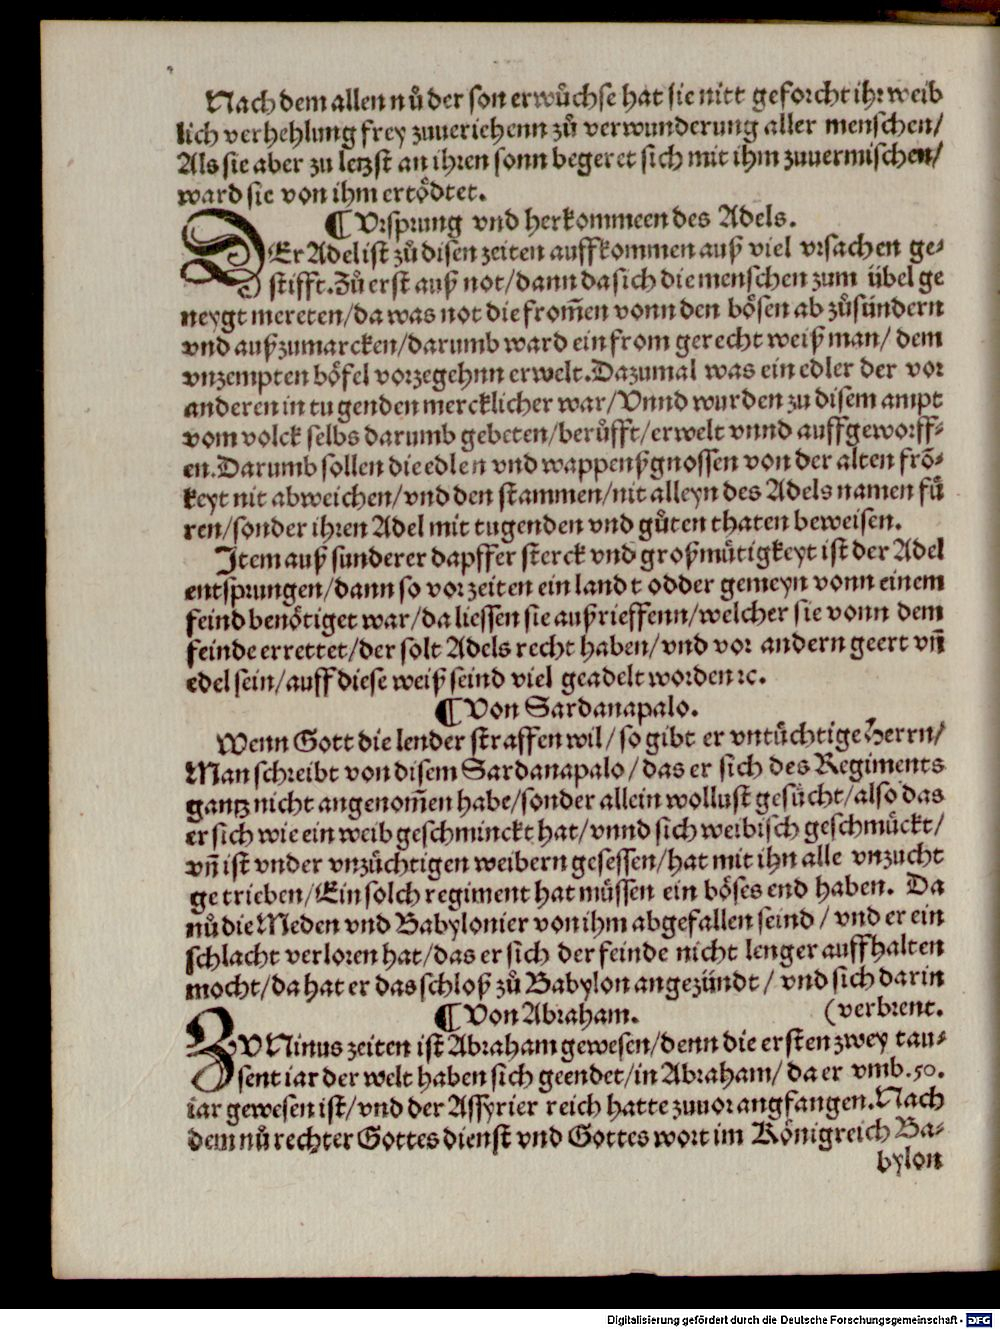 Nach dem allen nů der son erwůchse hat sie nitt geforcht ihr weib
lich verhehlung frey zuueriehenn zů verwunderung aller menschen/
Als sie aber zu letzst an ihren sonn begeret sich mit ihm zuuermischen/
ward sie von ihm ertödtet.
¶ Vrsprung vnd herkommeen des Adels.
DEr Adel ist zů disen zeiten auffkommen auß viel vrsachen ge-
stifft. Zů erst auß not/dann da sich die menschen zum übel ge
neygt mereten/da was not die from̃en vonn den bösen ab zůsündern
vnd außzumarcken/darumb ward ein from gerecht weiß man/ dem
vnzempten böfel vorzegehnn erwelt. Dazumal was ein edler der vor
anderen in tugenden mercklicher war/Vnnd wurden zu disem ampt
vom volck selbs darumb gebeten/berůfft/erwelt vnnd auffgeworff-
en. Darumb sollen die edlen vnd wappenßgnossen von der alten frõ-
keyt nit abweichen/vnd den stammen/nit alleyn des Adels namen fů
ren/sonder ihren Adel mit tugenden vnd gůten thaten beweisen.
Item auß sunderer dapffer sterck vnd großmütigkeyt ist der Adel
entsprungen/dann so vor zeiten ein landt odder gemeyn vonn einem
feind benötiget war/da liessen sie außrieffenn/welcher sie vonn dem
feinde errettet/der solt Adels recht haben/vnd vor andern geert vñ
edel sein/auff diese weiß seind viel geadelt worden ꝛc.
¶ Von Sardanapalo.
Wenn Gott die lender straffen wil/so gibt er vntüchtige Herrn/
Man schreibt von disem Sardanapalo/das er sich des Regiments
gantz nicht angenom̃en habe/sonder allein wollust gesücht/also das
er sich wie ein weib geschminckt hat/vnnd sich weibisch geschmückt/
vñ ist vnder vnzüchtigen weibern gesessen/hat mit ihn alle vnzucht
getrieben/Ein solch regiment hat müssen ein böses end haben. Da
nů die Meden vnd Babylonier von ihm abgefallen seind/vnd er ein
schlacht verloren hat/das er sich der feinde nicht lenger auffhalten
mocht/da hat er das schloß zů Babylon angezündt/vnd sich darin
¶ Von Abraham. (verbrent.
ZV Ninus zeiten ist Abraham gewesen/denn die ersten zwey tau-
sent iar der welt haben sich geendet/in Abraham/da er vmb. 50.
iar gewesen ist/vnd der Assyrier reich hatte zuuor angfangen. Nach
dem nů rechter Gottes dienst vnd Gottes wort im Königreich Ba-
bylon
Digitalisierung gefördert durch die Deutsche Forschungsgemeinschaft - DFG